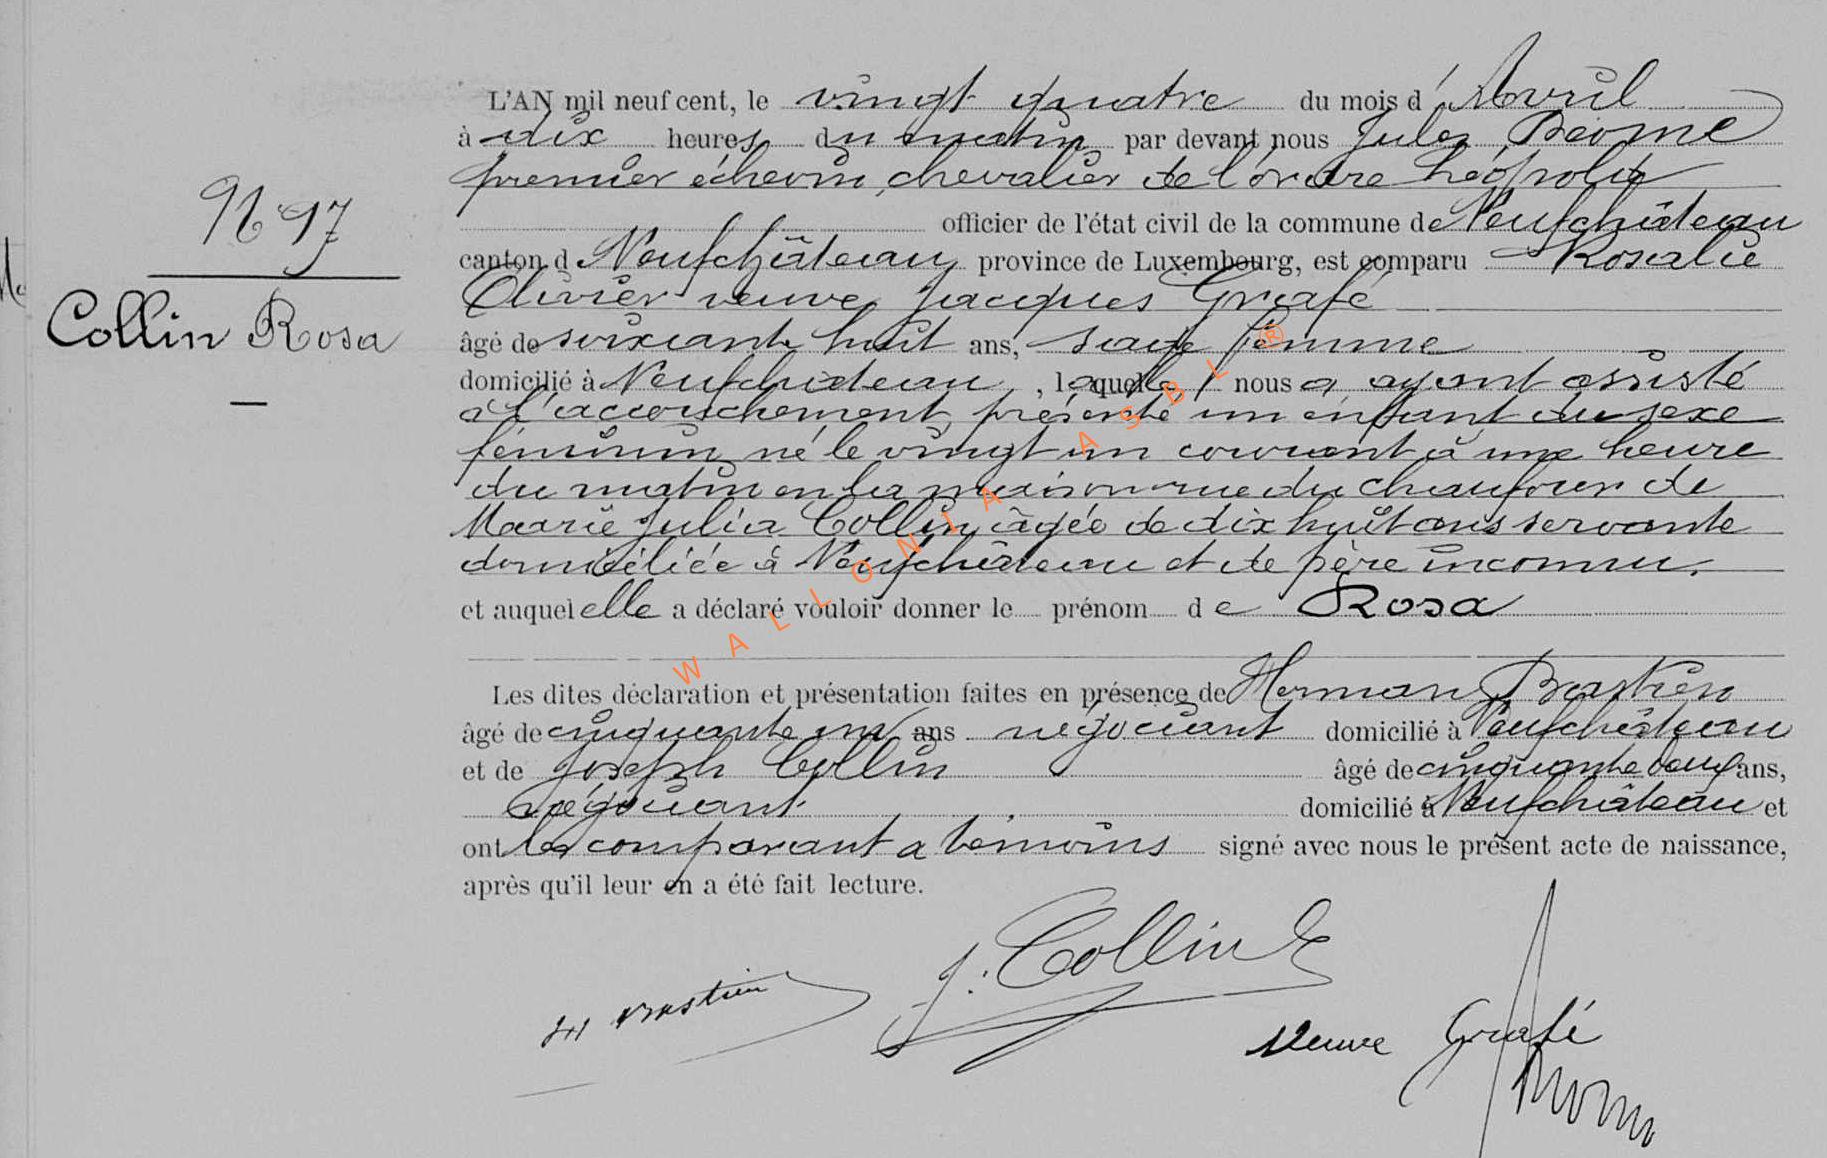 L'AN mil neuf cent, le vingt quatre du mois d'Avril
à dix heures du matin par devant nous Jules
premier échevin, chevalier de l'ordre Léopold
officier de l'état civil de la commune de Neufchâteau
N 97
canton d Neufchâteau province de Luxembourg, est comparu Rosalie
Olivier veuve Jacques Grafé
Collin Rosa
âgé de soixante huit ans, sage femme
domicilié à Neufchâteau, laquelle nous a ayant assisté
à l'accouchement, présenté un enfant du sexe
féminin né le vingt un courant à une heure
du matin en la maison rue du chaufour de
Marie Julia Collin, âgée de dix huit ans servante
domiciliée à Neufchâteau et de père inconnu.
et auquel elle a déclaré vouloir donner le prénom de Rosa
WALLONIA ASBL ®
Les dites déclaration et présentation faites en présence de Herman Bastien
âgé de cinquante un ans négociant domicilié à Neufchâteau
et de Joseph Collin âgé de cinquante ans,
négociant domicilié à Neufchâteau et
ont les comparant a témoins signé avec nous le présent acte de naissance,
après qu'il leur en a été fait lecture.
J. Collin
H Bastien
Veuve Grafé